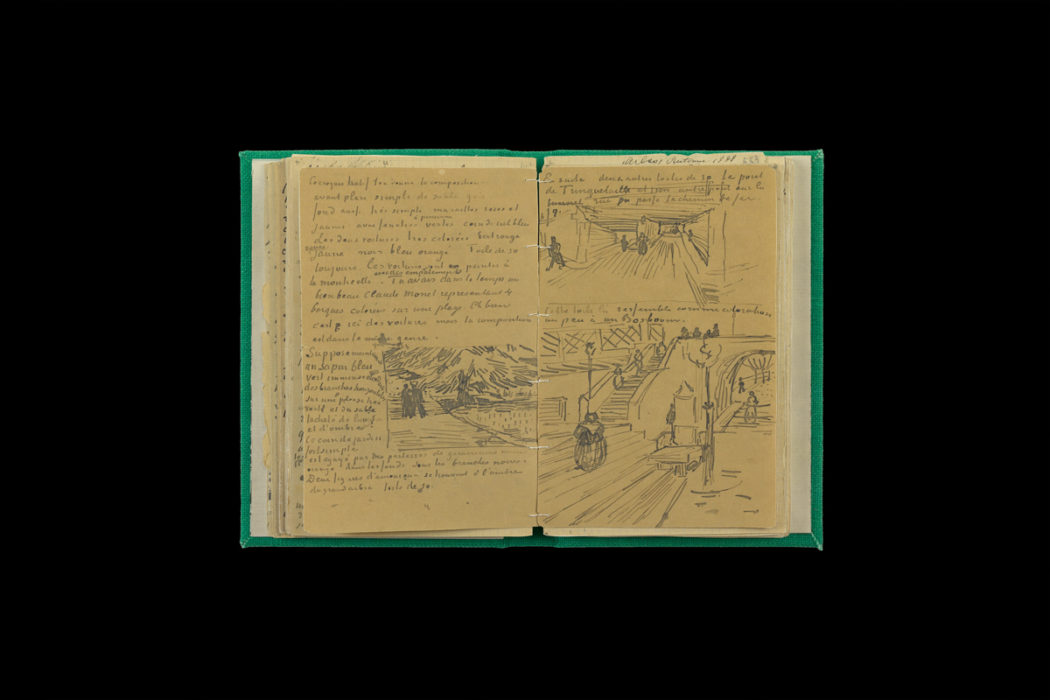 Croquis hatif
avant plan simple de sable gris
fond aussi très simple murailles roses et
jaunes avec fenetres à persiennes vertes coin de ciel bleu
Les deux voitures tres colorées vert rouge
jaune noir bleu orangé Toile de 30
toujours Les voitures sont peintes à
la monticelli avec des empatements. Tu avais dans le temps un
bien beau Claude Monet representant 4
barques colorées sur une plage Eh bien
c'est ici des voitures mais la composition
est dans le même genre.
Supposes maintenant
un sapin bleu
vert immense
des branches horizontales
sur une pelouse tres
verte et du sable
tacheté de lumière
et d'ombre
Ce coin de jardin
fort simple
est egayé par des parterres de geraniums mine
orange dans les fonds sous les branches noires.
Deux figures d'amoureux se trouvent à l'ombre
du grand arbre toile de 30.
Arles Automne 1888
Ensuite deux autres toiles de 30 le pont
de Trinquetaille et son autre pont sur la
rue où passe le chemin de fer.
Cette toile là ressemble comme coloration
un peu à un Bosboom.